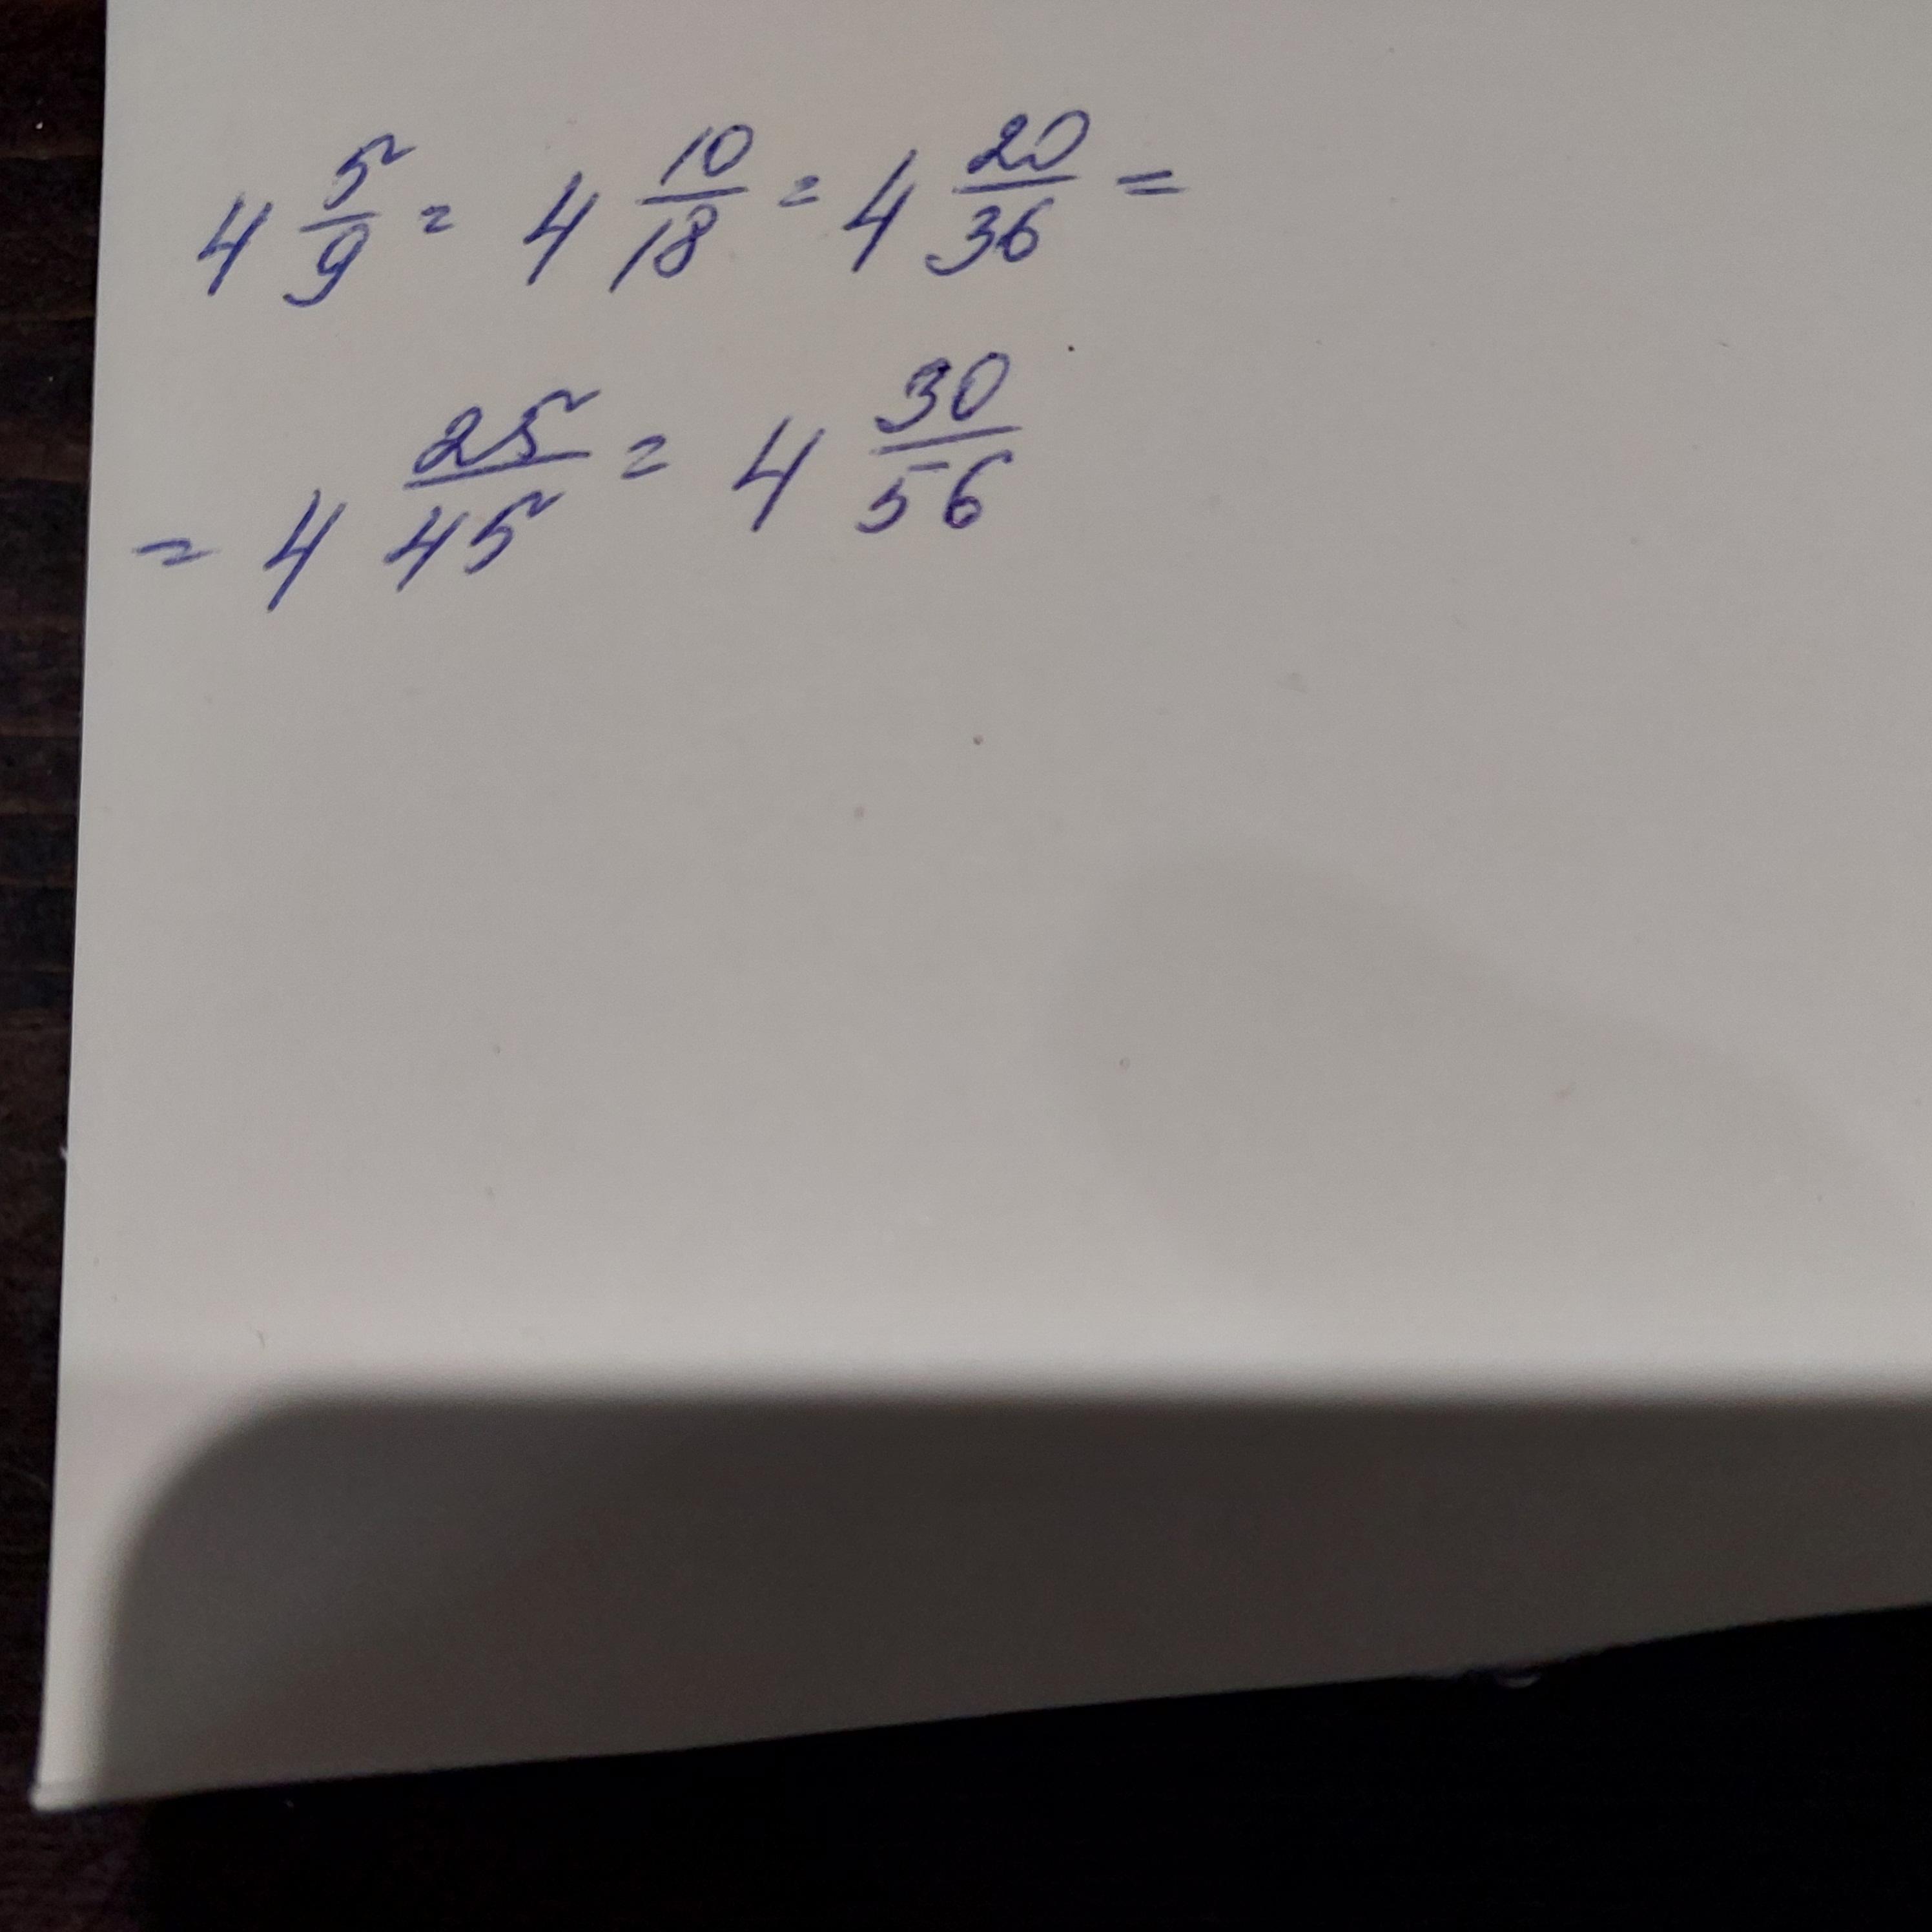 4 5/9 = 4 10/18 = 4 20/36 =
= 4 25/45 = 4 30/56